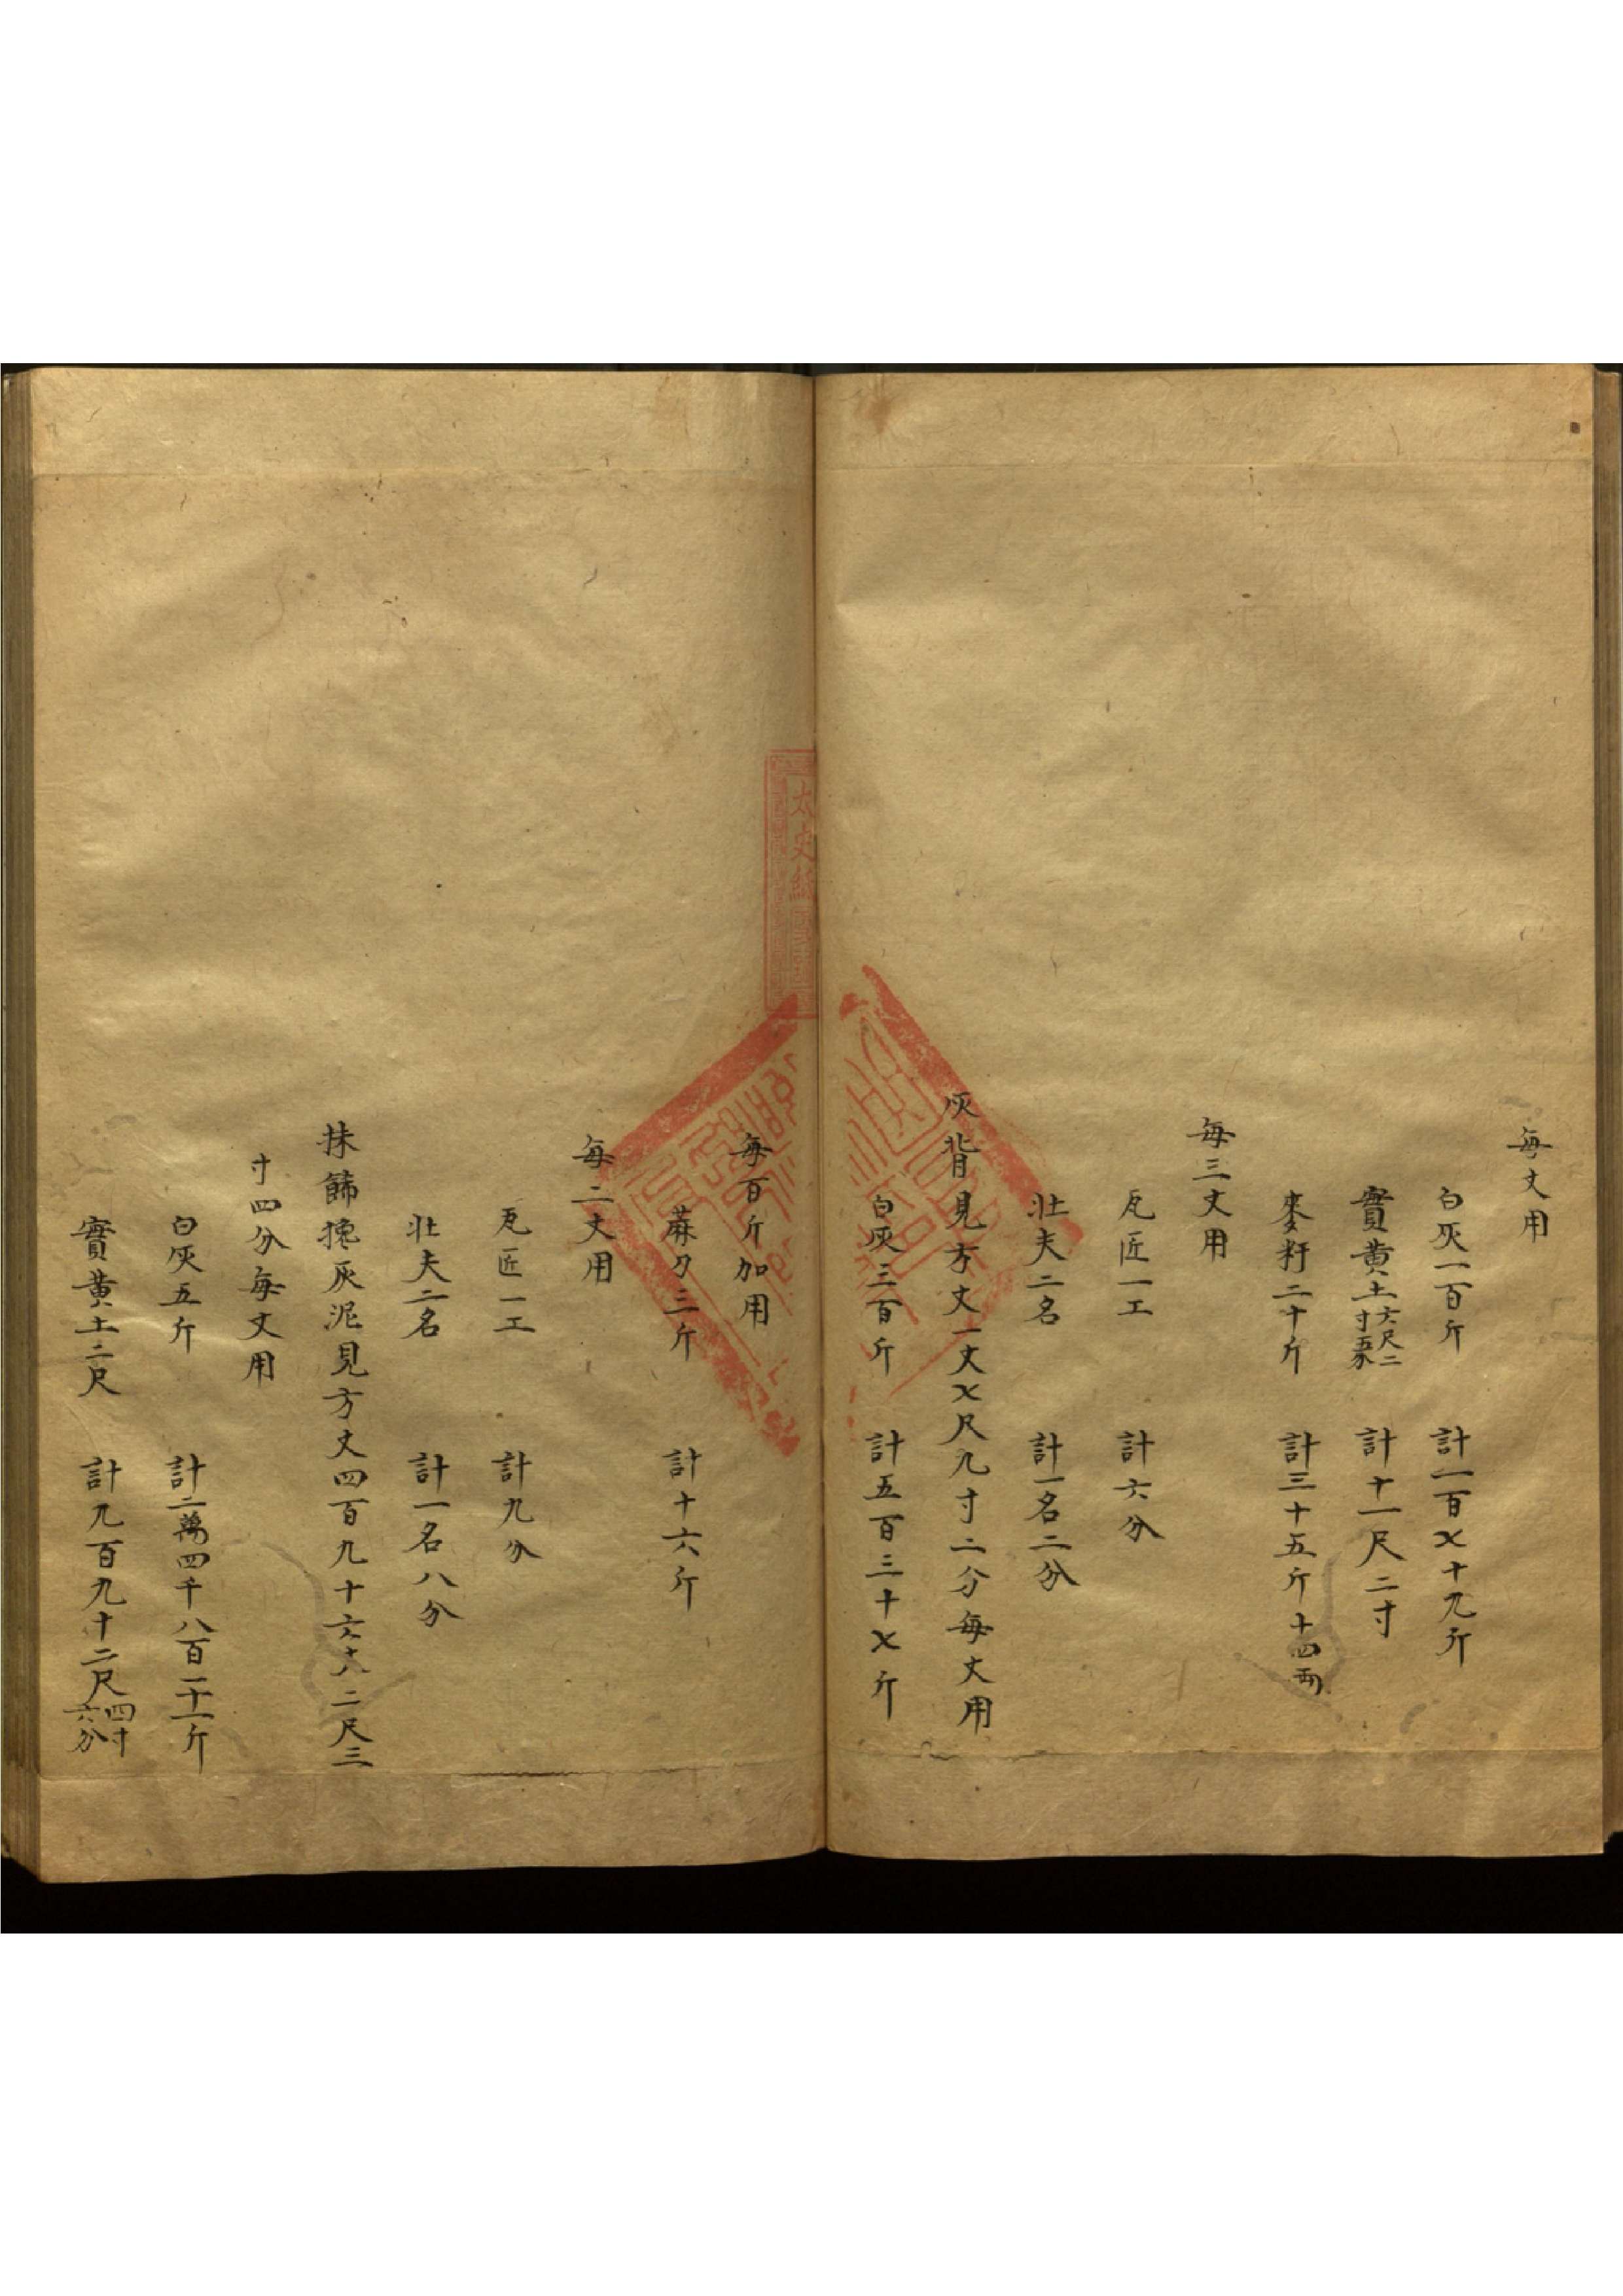 每丈用
白灰一百斤 計一百七十九斤
實黃土六尺二寸五分 計十一尺二寸
麥籽二十斤 計三十五斤十四兩
每三丈用
瓦匠一工 計六分
壯夫二名 計一名二分
灰背見方丈一丈七尺九寸二分每丈用
白灰三百斤 計五百三十七斤
每百斤加用
蔴刀三斤 計十六斤
每二丈用
瓦匠一工 計九分
壯夫二名 計一名八分
抹餙攙灰泥見方丈四百九十六丈二尺三
寸四分每丈用
白灰五斤 計二萬四千八百一十一斤
實黃土二尺 計九百九十二尺四寸六分
太史